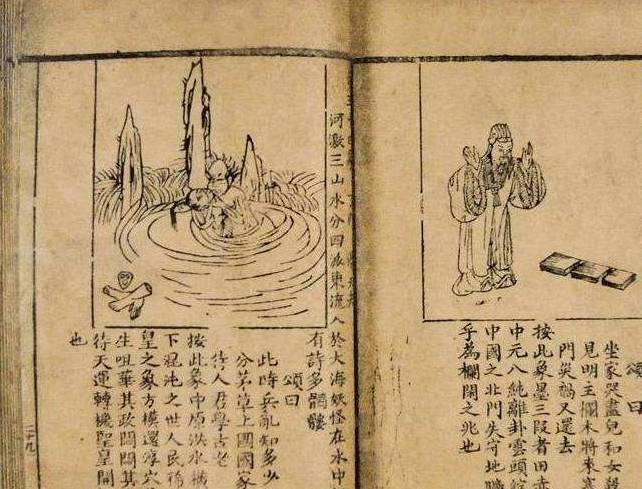 頌曰
坐家哭盡兒和女
見明主攔木將東
門災禍又還去
按此象墨三段者田
中元八純離卦雲頭
中國之北門失守地
乎為欄開之兆也
河激三山水分四派東流入於大海妖怪在水中
有詩多髑髏
頌曰
此時兵亂知多少
分茅草上國國家
待人君學古老
按此象中原洪水橫
下混沌之世人民
皇之象方模還淳
生咀華其政悶悶其
待天運轉機聖皇開
也
二十九